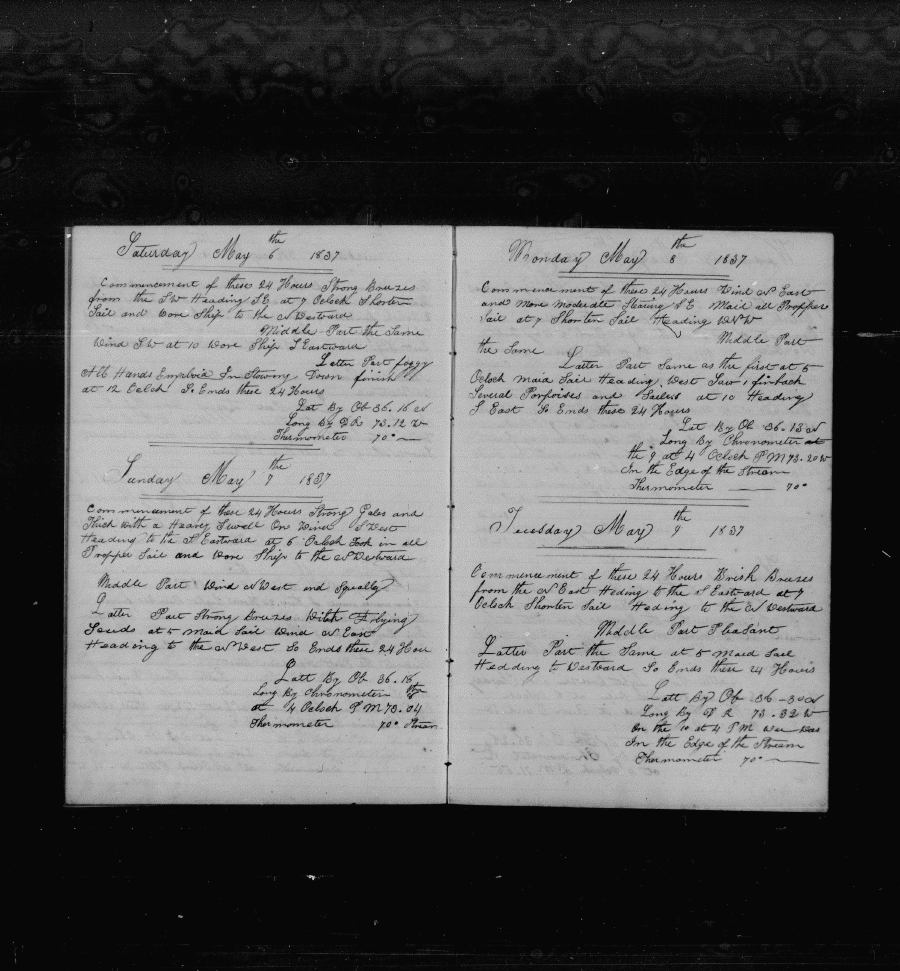 Saturday May 6 the 1837
Commencement of these 24 Hours Strong Breezes
from the SW Heading SE at 7 Oclock Shorten
Sail and Wore Ship to the N Westward
Middle Part the Same
Wind SW at 10 Wore Ship S Eastward
Latter Part foggy
All Hands Employed In Stowing Down finish
at 12 Oclock So Ends these 24 Hours
Lat By Ob 36.16 N
Long By DR 73.12 W
Thermometer 70°
Sunday May 7 the 1837
Commencement of these 24 Hours Strong Gales and
Thick with a Heavey Swell On Wind S West
Heading to the S Eastward at 6 Oclock Took in all
Propper Sail and Wore Ship to the N Westward
Middle Part Wind N West and Squally
Latter Part Strong Breezes With Flying
at 5 Maid Sail Wind N East
Heading to the N West So Ends these 24 Hour
Latt By Ob 36.16
Long By Chronometer
at 4 Oclock P M 73.04
Thermometer 70° Stream
Monday May 8 the 1837
Commencement of these 24 Hours Wind N East
and More Moderate Stearing S E Maid all Propper
Sail at 7 Shorten Sail Heading WNW
Middle Part
the Same
Latter Part Same as the first at 5
Oclock Maid Sail Heading West Saw 1 finback
Several Porpoises and at 10 Heading
S East So Ends these 24 Hours
Lat By Ob 36.13 N
Long By Chronometer at
the 9 at 4 Oclock P M 73.20 W
In the Edge of the Stream
Thermometer 70°
Tuesday May 9 the 1837
Commencement of these 24 Hours Brish Breezes
from the N East Heding to the S Eastward at 7
Oclock Shorten Sail Heding to the N Westward
Middle Part Pleasant
Latter Part the Same at 5 Maid Sail
Hedding to Westward So Ends these 24 Hours
Latt By Ob 36-30 N
Long By D R 73.32 W
On the 10 at 4 P M Wee Was
In the Edge of the Stream
Thermometer 70°